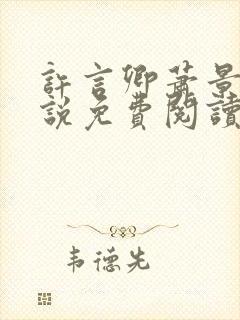 許言卿蕭景
說免費閱讀
韦德先